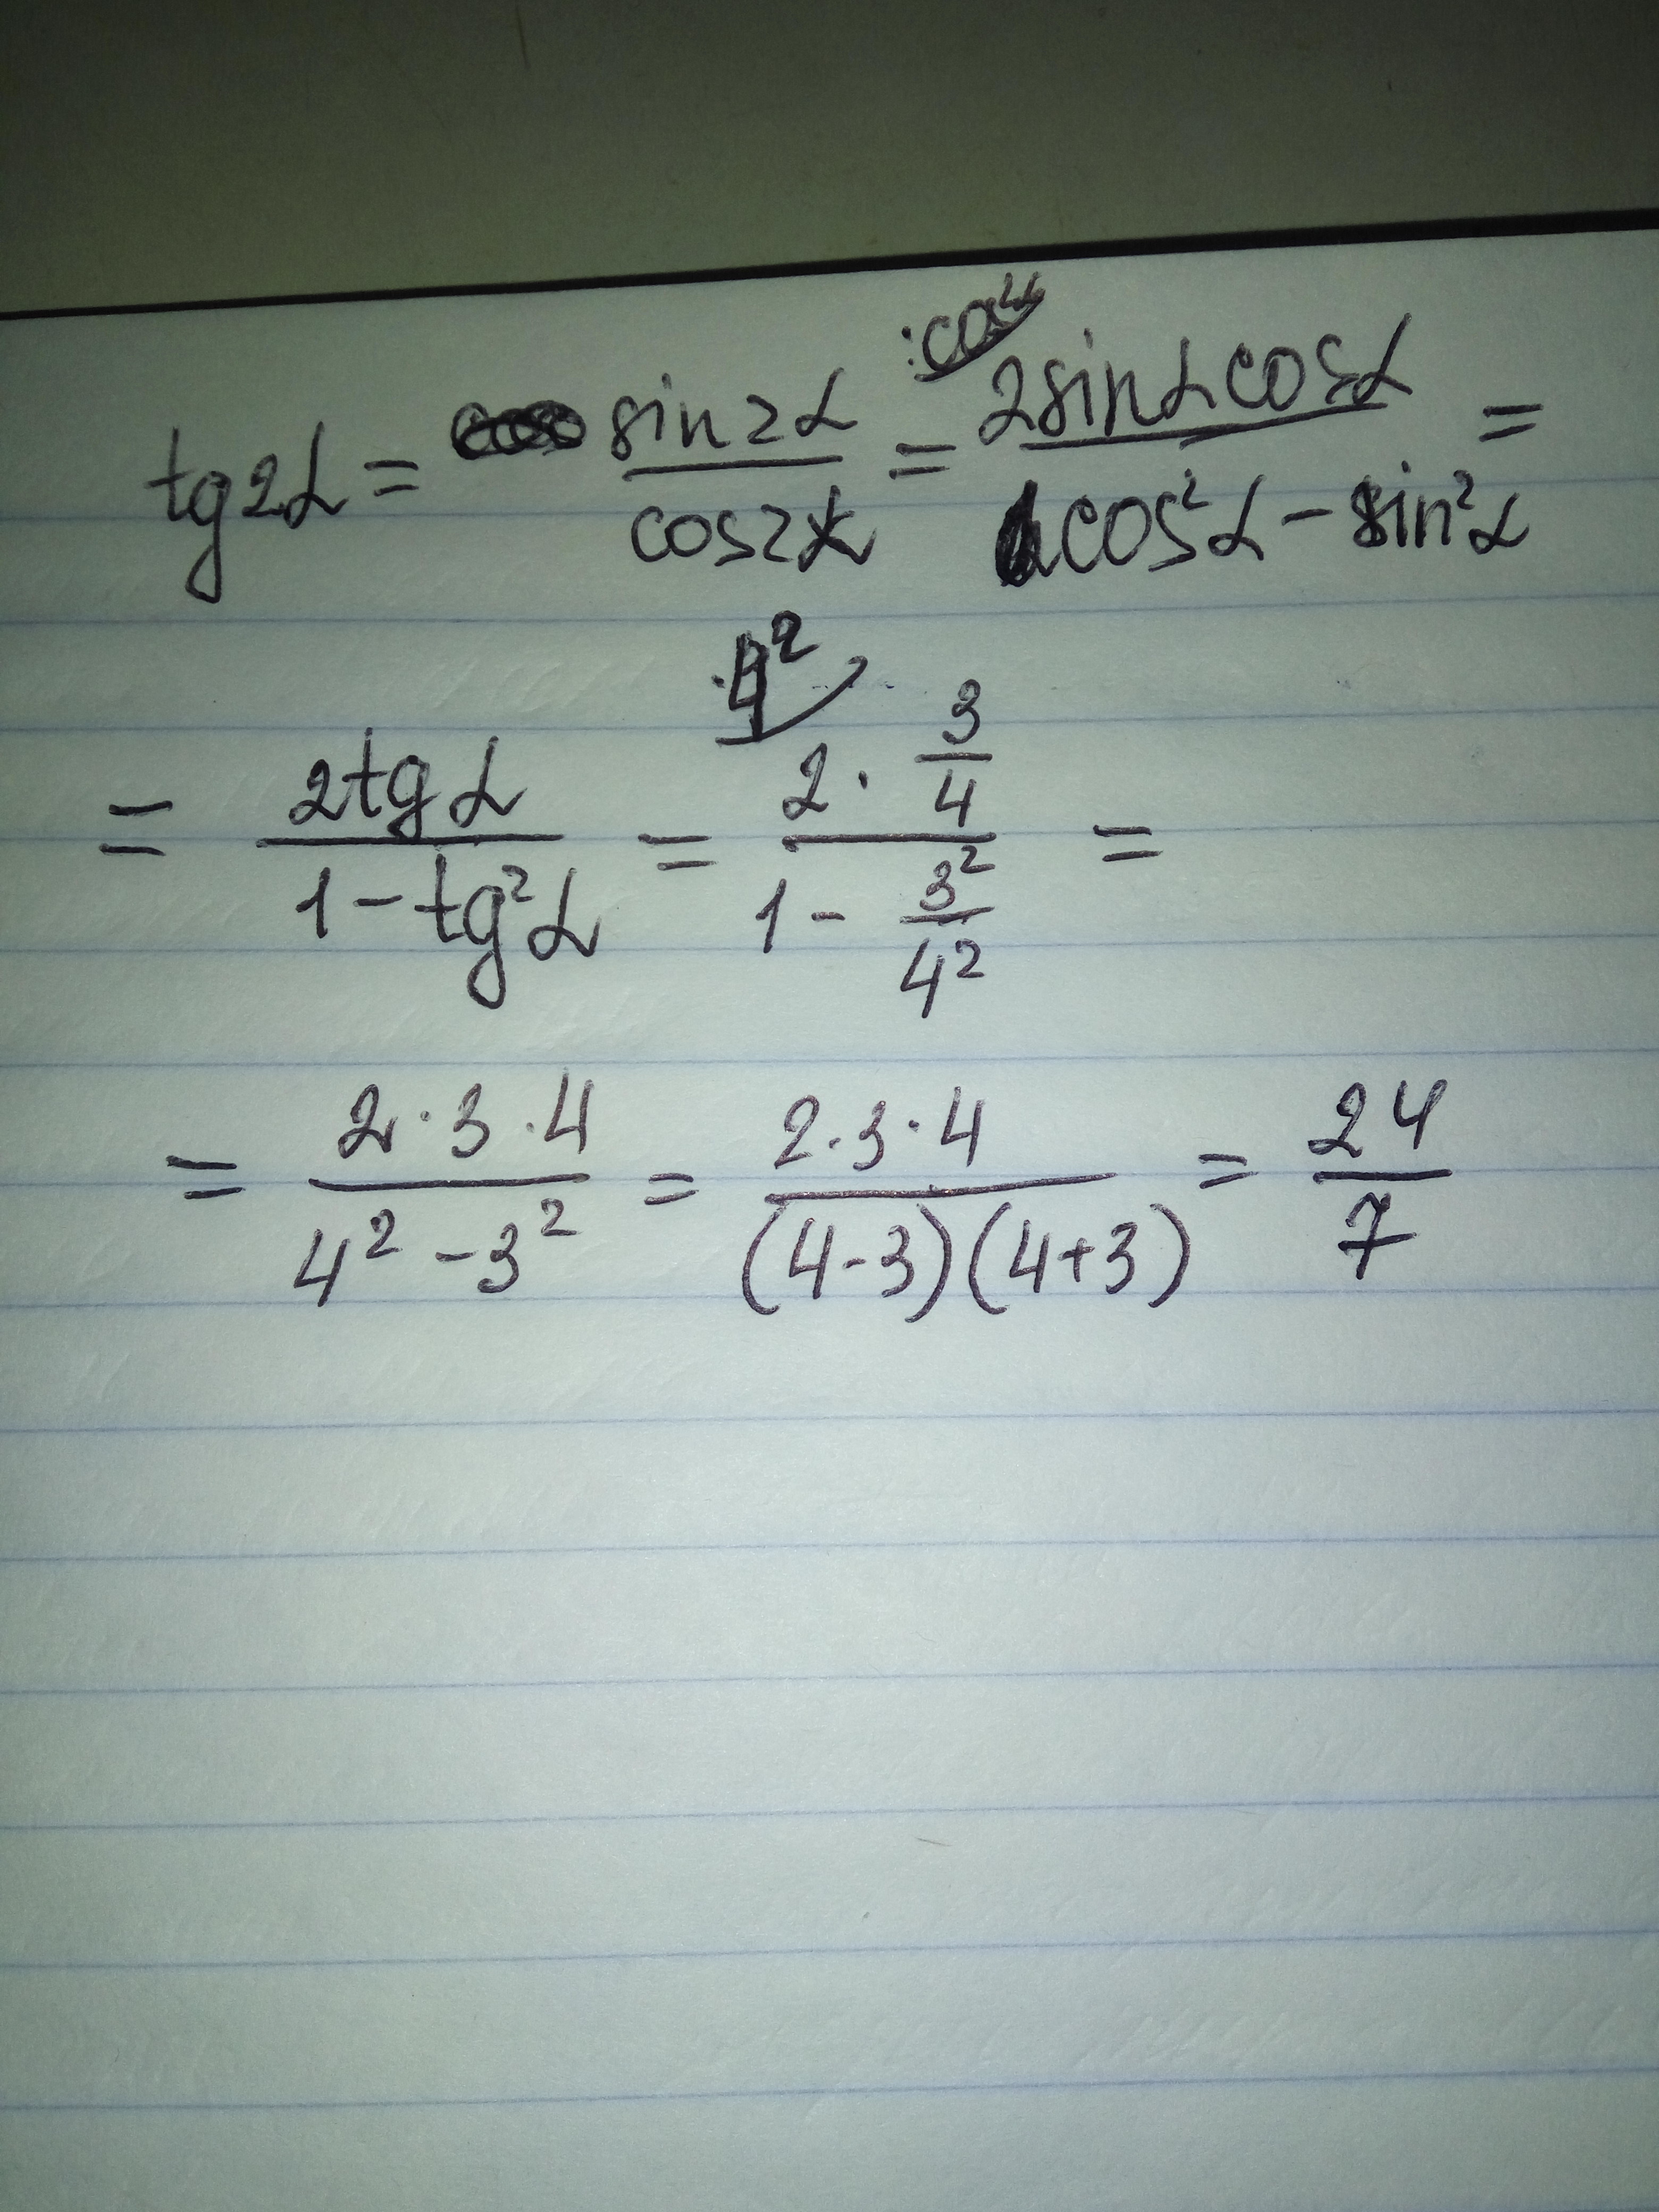 tg2α = sin2α/cos2α = :cos²α 2sinαcosα/cos²α - sin²α =
= 2tgα/1 - tg²α = ·4² 2 · 3/4 / 1 - 3²/4² =
= 2·3·4/4² - 3² = 2·3·4/(4-3)(4+3) = 24/7